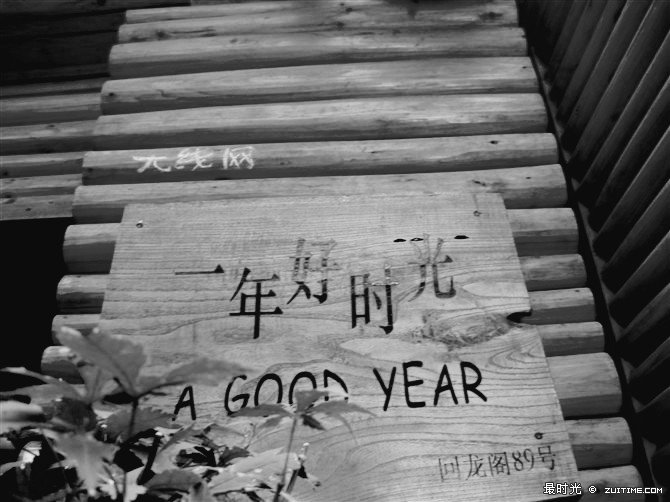 无线网
一年好时光
A GOOD YEAR
回龙阁89号
最时光 © ZUITIME.COM